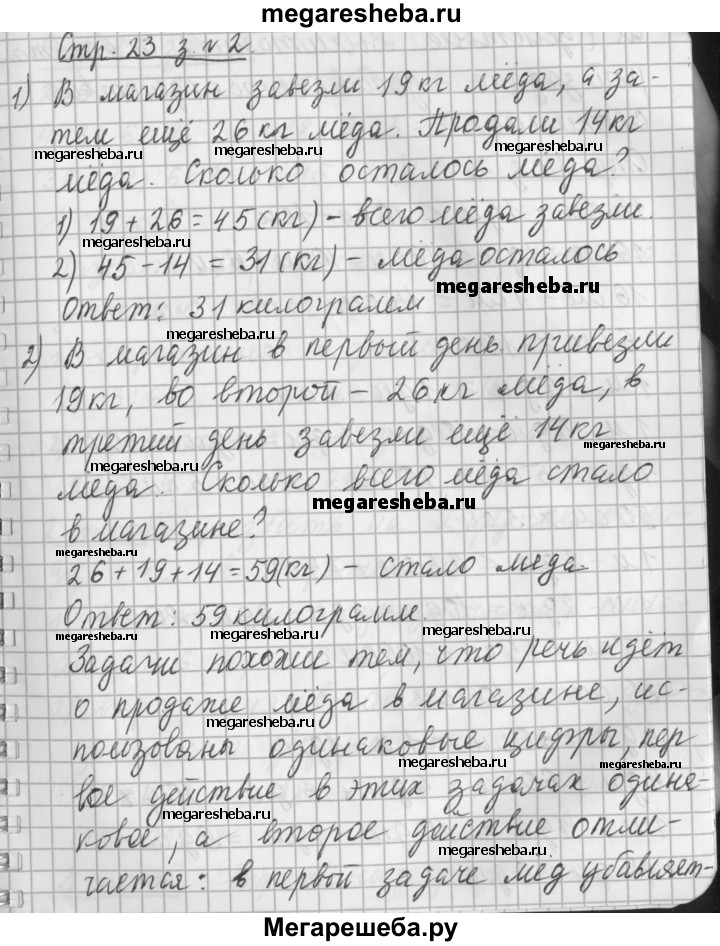 megaresheba.ru
Стр. 23 з. № 2.
1) В магазин завезли 19 кг мёда, а за-
тем ещё 26 кг мёда. Продали 14 кг
megaresheba.ru megaresheba.ru megaresheba.ru
мёда. Сколько осталось меда?
1) 19 + 26 = 45 (кг) – всего мёда завезли.
megaresheba.ru
2) 45 – 14 = 31 (кг) – мёда осталось
megaresheba.ru
Ответ: 31 килограмм
megaresheba.ru
2) В магазин в первый день привезли
19 кг, во второй – 26 кг мёда, в
третий день завезли ещё 14 кг
megaresheba.ru megaresheba.ru
меда. Сколько всего мёда стало
megaresheba.ru
в магазине?
megaresheba.ru megaresheba.ru
26 + 19 + 14 = 59 (кг) – стало меда.
Ответ: 59 килограмм.
megaresheba.ru megaresheba.ru megaresheba.ru
Задачи похожи тем, что речь идёт
о продаже мёда в магазине, ис-
megaresheba.ru
пользованы одинаковые цифры, пер
megaresheba.ru megaresheba.ru
вое действие в этих задачах одина-
megaresheba.ru
ковое, а второе действие отли-
megaresheba.ru megaresheba.ru
чается: в первой задаче мёд убавляет-
Мегарешеба.ру